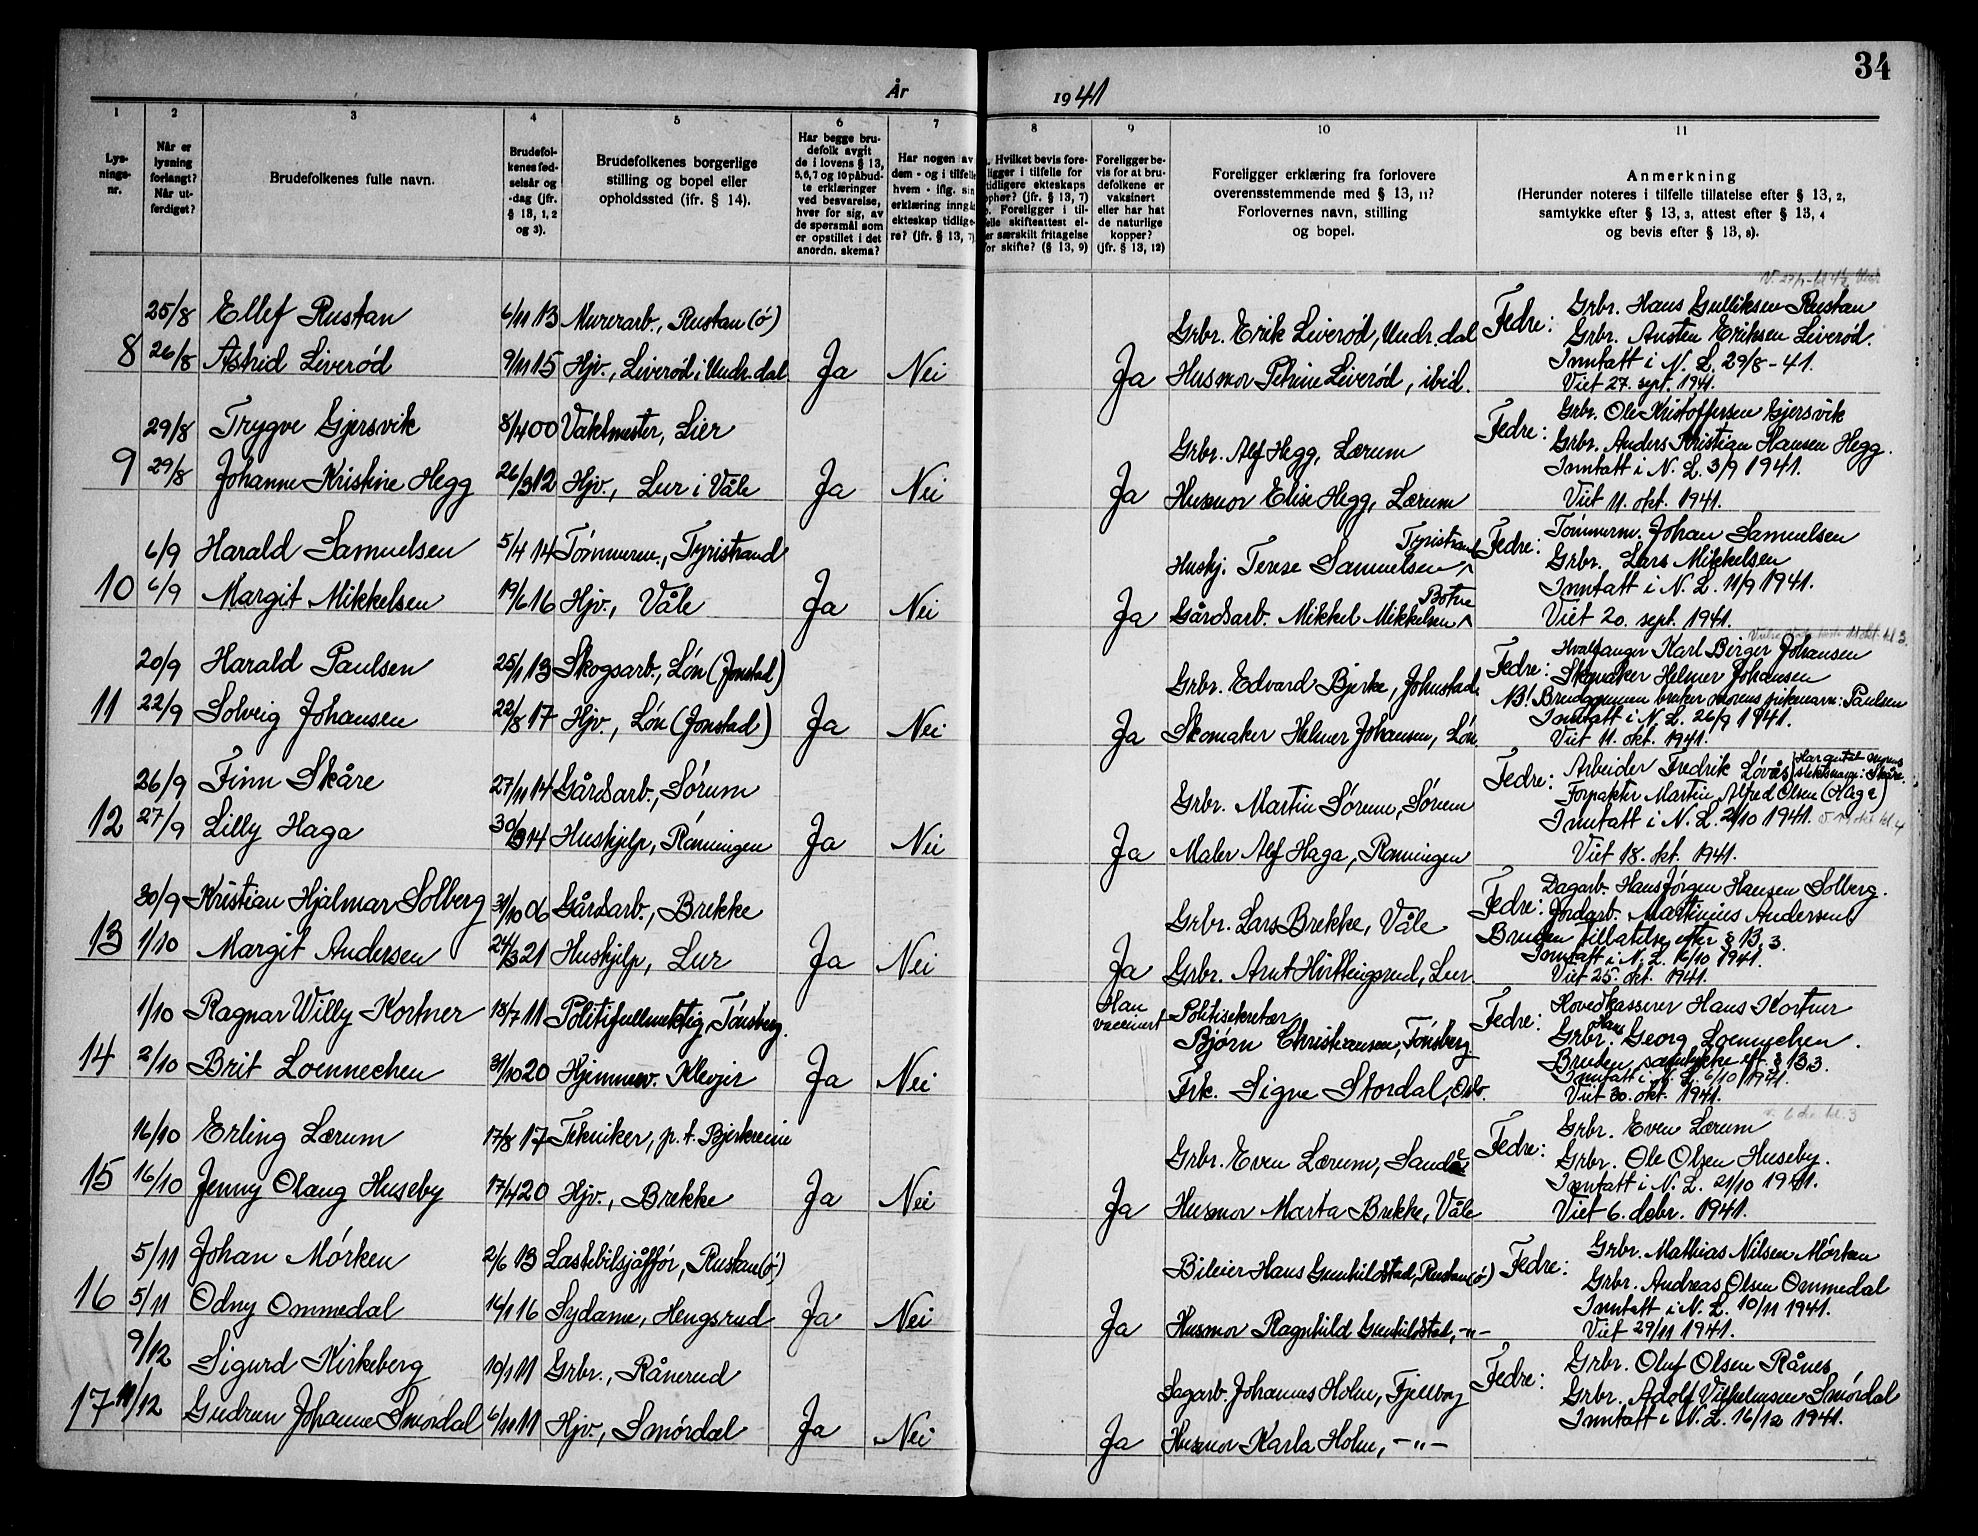 34
År 1941
1 2 3 4 5 6 7 8 9 10 11
Lys-
nings-
nr.
Når er
lysning
forlangt?
Når ut-
ferdiget?
Brudefolkenes fulle navn.
Brudefol-
kenes fød-
selsår og
-dag (jfr.
§ 13, 1, 2
og 3).
Brudefolkenes borgerlige
stilling og bopel eller
opholdssted (ifr. § 14).
Har begge bru-
defolk avgit
de i lovens § 13,
5, 6, 7 og 10 påbud-
te erklæringer
ved besvarelse,
hver for sig, av
de spørsmål som
er opstillet i det
anordn. skema?
Har nogen av
dem - og i tilfelle
hvem - iflg. sin
erklæring inngå
ekteskap tidlige-
re? (jfr. § 13, 7)
. Hvilket bevis fore-
ligger i tilfelle for
tidligere ekteskaps
ophør? (jfr. § 13, 7)
b. Foreligger i til-
felle skifteattest el-
er særskilt fritagelse
for skifte? (§ 13, 9)
Foreligger be-
vis for at bru-
defolkene er
vaksinert
eller har hat
de naturlige
kopper?
(jfr. § 13, 12)
Foreligger erklæring fra forlovere
overensstemmende med § 13, 11?
Forlovernes navn, stilling
og bopel.
Anmerkning
(Herunder noteres i tilfelle tillatelse efter § 13, 2,
samtykke efter § 13, 3, attest efter § 13, 4
og bevis efter § 13, 8).
25/8 Ellef Rustan 6/11 13 Murerarb., Rustan (ø)
8 26/8 Astrid Liverød 9/11 15 Hjv., Liverød i Undr.dal Ja Nei
Grbr. Erik Liverød, Undr.dal
Ja Husmor Petrine Liverød, ibid.
Fedre: Grbr. Hans Gulliksen Rustan
Grbr. Austen Eriksen Liverød.
Inntatt i N. L. 29/8 - 41.
Viet 27. sept. 1941.
29/8 Trygve Gjersvik 8/4 00 Vaktmester, Lier
9 29/8 Johanne Kristine Hegg 26/3 12 Hjv., Lur i Våle Ja Nei
Grbr. Alf Hegg, Lærum
Ja Husmor Elise Hegg, Lærum
Fedre: Grbr. Ole Kristoffersen Gjersvik
Grbr. Anders Kristian Hansen Hegg.
Inntatt i N. L. 3/9 1941.
Viet 11. okt. 1941.
6/9 Harald Samuelsen 5/4 14 Tømmerm., Tyristrand
10 6/9 Margit Mikkelsen 19/6 16 Hjv., Våle Ja Nei
Huskj. Terese Samuelsen, Tyristrand
Ja Gårdsarb. Mikkel Mikkelsen, Botne
Fedre: Tømmerm. Johan Samuelsen
Grbr. Lars Mikkelsen
Inntatt i N. L. 11/9 1941.
Viet 20. sept. 1941.
20/9 Harald Paulsen 25/11 13 Skogsarb., Løn (Jonstad)
11 22/9 Solveig Johansen 22/8 17 Hjv., Løn (Jonstad) Ja Nei
Grbr. Edvard Bjerke, Johnstad
Ja Skomaker Helmer Johansen, Løn.
Fedre: Hvalfanger Karl Birger Johansen
Skomaker Helmer Johansen
NB! Brudgommen bruker morens pikenavn: Paulsen
Inntatt i N. L. 26/9 1941.
Viet 11. okt. 1941.
26/9 Finn Skåre 27/11 14 Gårdsarb., Sørum
12 27/9 Lilly Haga 30/3 14 Huskjelp, Rønningen Ja Nei
Grbr. Martin Sørum, Sørum
Ja Maler Alf Haga, Rønningen
Fedre: Arbeider Fredrik Løvås
slektsnavn: Skåre.
Forpakter Martin Alfred Olsen (Haga)
Inntatt i N. L. 2/10 1941.
Viet 18. okt. 1941.
30/9 Kristian Hjalmar Solberg 31/10 06 Gårdsarb., Brekke
13 1/10 Margit Andersen 24/3 21 Huskjelp, Lur Ja Nei
Grbr. Lars Brekke, Våle
Ja Grbr. Arnt Hvittingsrud, Lur.
Fedre: Dagarb. Hans Jørgen Hansen Solberg.
Jordarb. Martinius Andersen
Bruden tillatelse efter § 13, 3.
Inntatt i N. L. 16/10 1941.
Viet 25. okt. 1941.
1/10 Ragnar Willy Kortner 18/7 11 Politifullmektig, Tønsberg.
14 2/10 Brit Loennechen 31/10 20 Hjemmev. Klevjer Ja Nei
Han
vaccinert
Politisekretær
Bjørn Christiansen, Tønsberg
Frk. Signe Stordal, Oslo.
Fedre: Hovedkasserer Hans Kortner
Grbr. Hans Georg Loennechen.
Bruden samtykke eft. § 13 3
Inntatt i N. L. 6/10 1941.
Viet 30. okt. 1941.
16/10 Erling Lærum 17/8 17 Tekniker, p. t. Bjerkreim
15 16/10 Jenny Olaug Huseby 17/4 20 Hjv., Brekke Ja Nei
Grbr. Even Lærum, Sande
Ja Husmor Marta Brekke, Våle
Fedre: Grbr. Even Lærum
Grbr. Ole Olsen Huseby.
Inntatt i N. L. 21/10 1941.
Viet 6. debr. 1941.
5/11 Johan Mørken 2/6 13 Lastebilsjåffør, Rustan (ø)
16 5/11 Odny Ommedal 14/1 16 Sydame, Hengsrud Ja Nei
Bileier Hans Gunhildstad, Rustan (ø)
Ja Husmor Ragnhild Gunhildstad, -"-
Fedre: Grbr. Mathias Nilsen Mørken
Grbr. Andreas Olsen Ommedal
Inntatt i N. L. 10/11 1941.
Viet 29/11 1941.
9/12 Sigurd Kirkeberg 10/1 11 Grbr., Rånerud
17 11/12 Gudrun Johanne Smørdal 6/11 11 Hjv., Smørdal Ja Nei
Sagarb. Johannes Holm, Fjellborg
Ja Husmor Karla Holm, -"-
Fedre: Grbr. Oluf Olsen Rånes
Grbr. Adolf Vilhelmsen Smørdal
Inntatt i N. L. 16/12 1941.